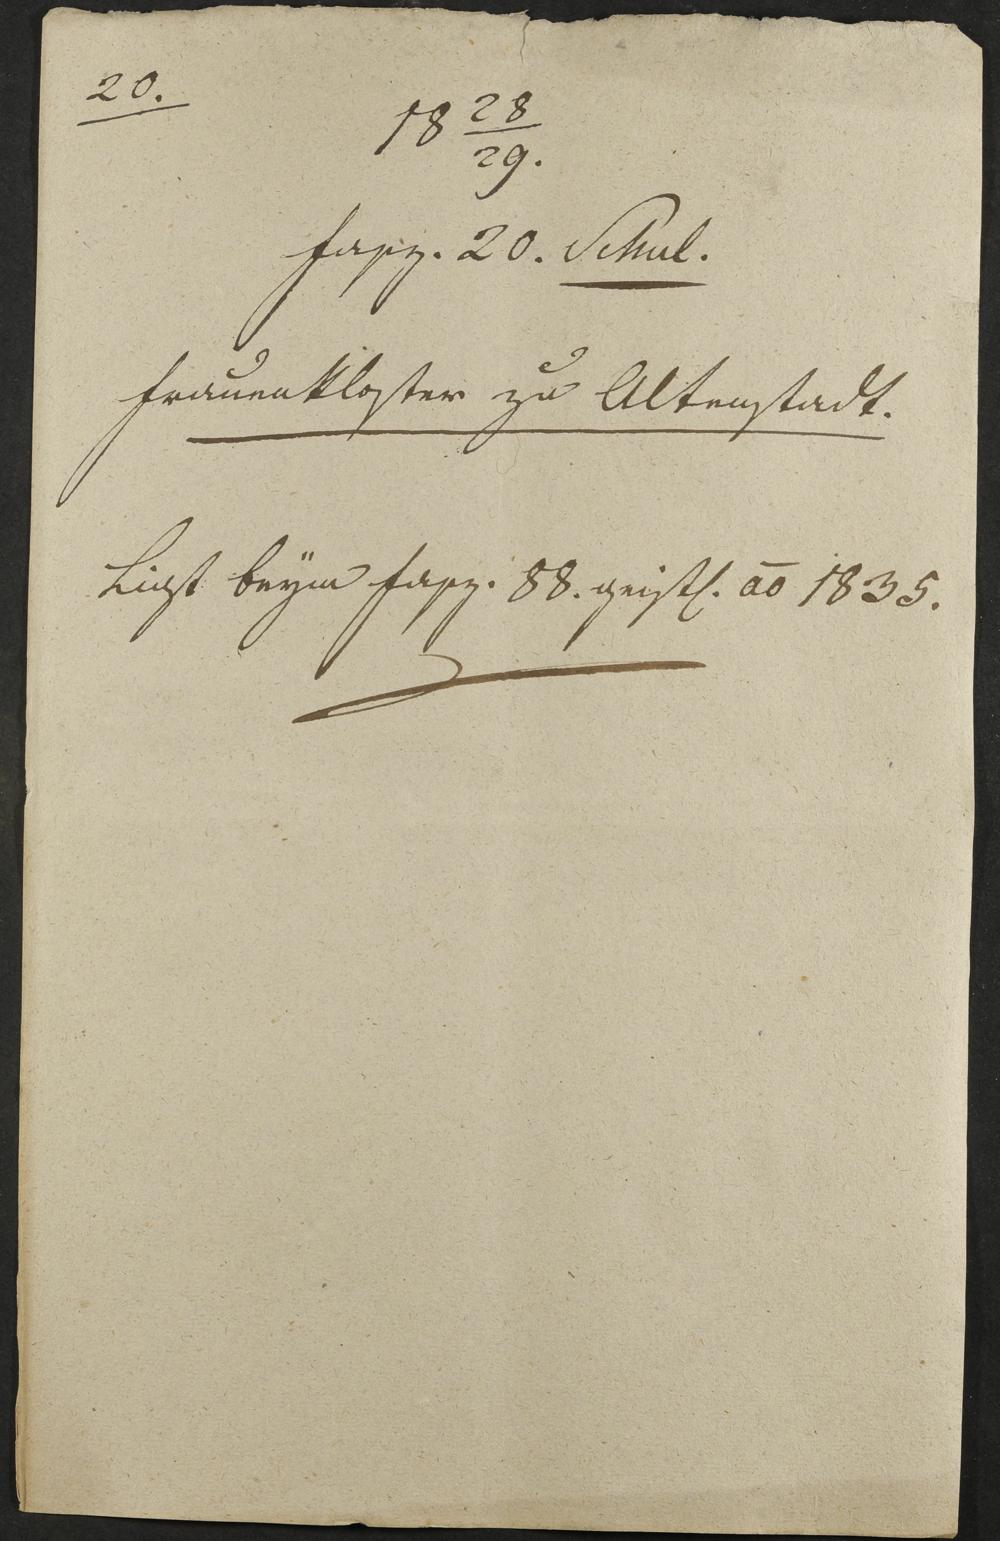 20.
18 28/29.
Fasz. 20. Schul.
Frauenkloster zu Altenstadt.
Liegt beym Fasz. 88. geistl. ao 1835.